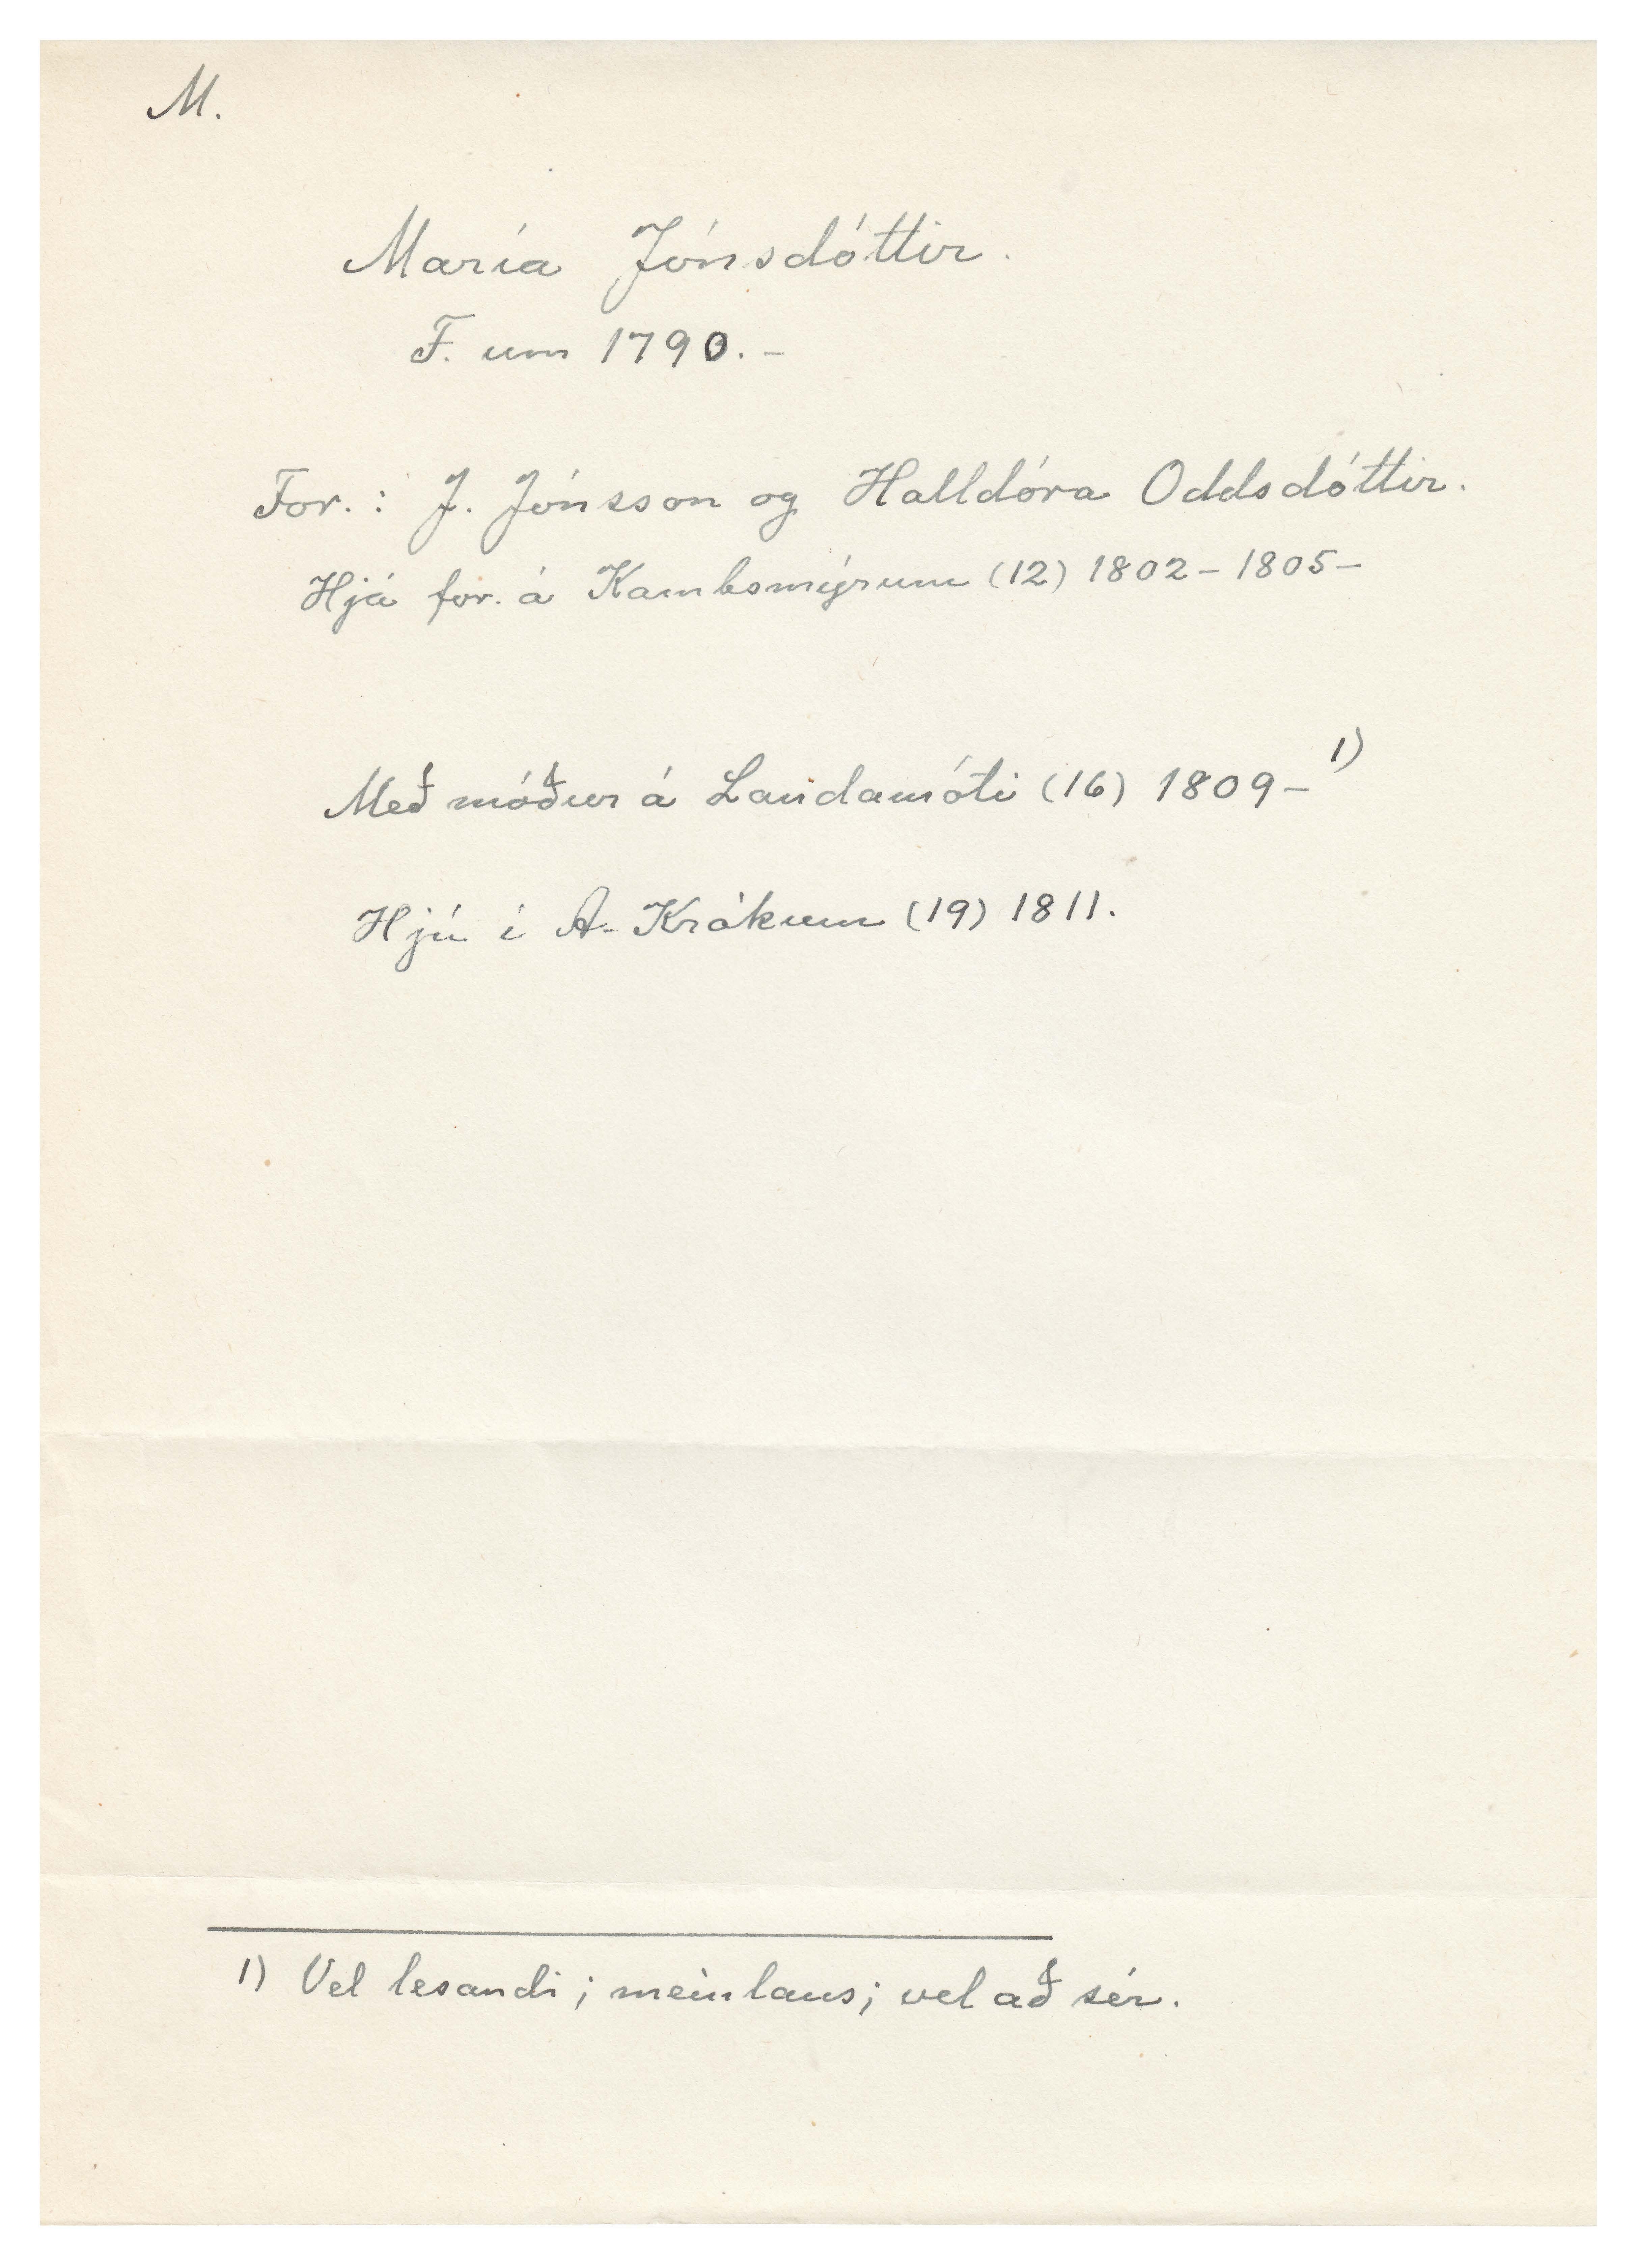 M.
María Jónsdóttir.
F. um 1790.-
For.: J. Jónsson og Halldóra Oddsdóttir.
Hjá for. á Kambsmýrum (12) 1802-1805-
Með móður á Landamóti (16) 1809- 1)
Hjú í A-Krókum (19) 1811.
1) Vel lesandi; meinlaus; vel að sér.